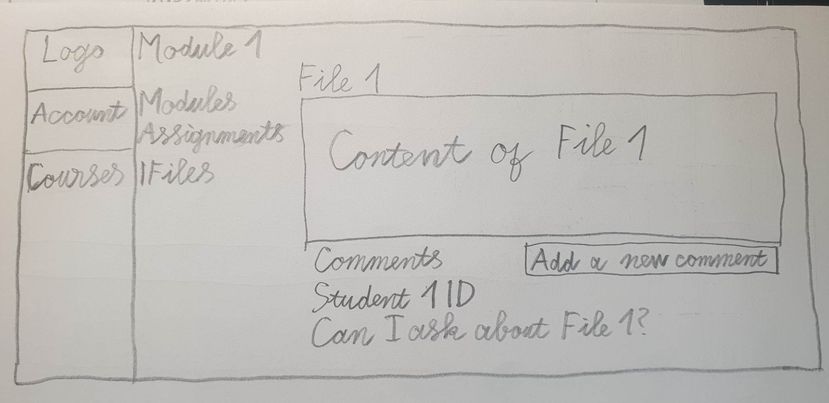 Logo
Account
Courses
Module 1
Modules
Assignments
Files
File 1
Content of File 1
Comments
Add a new comment
Student 1 ID
Can I ask about File 1?